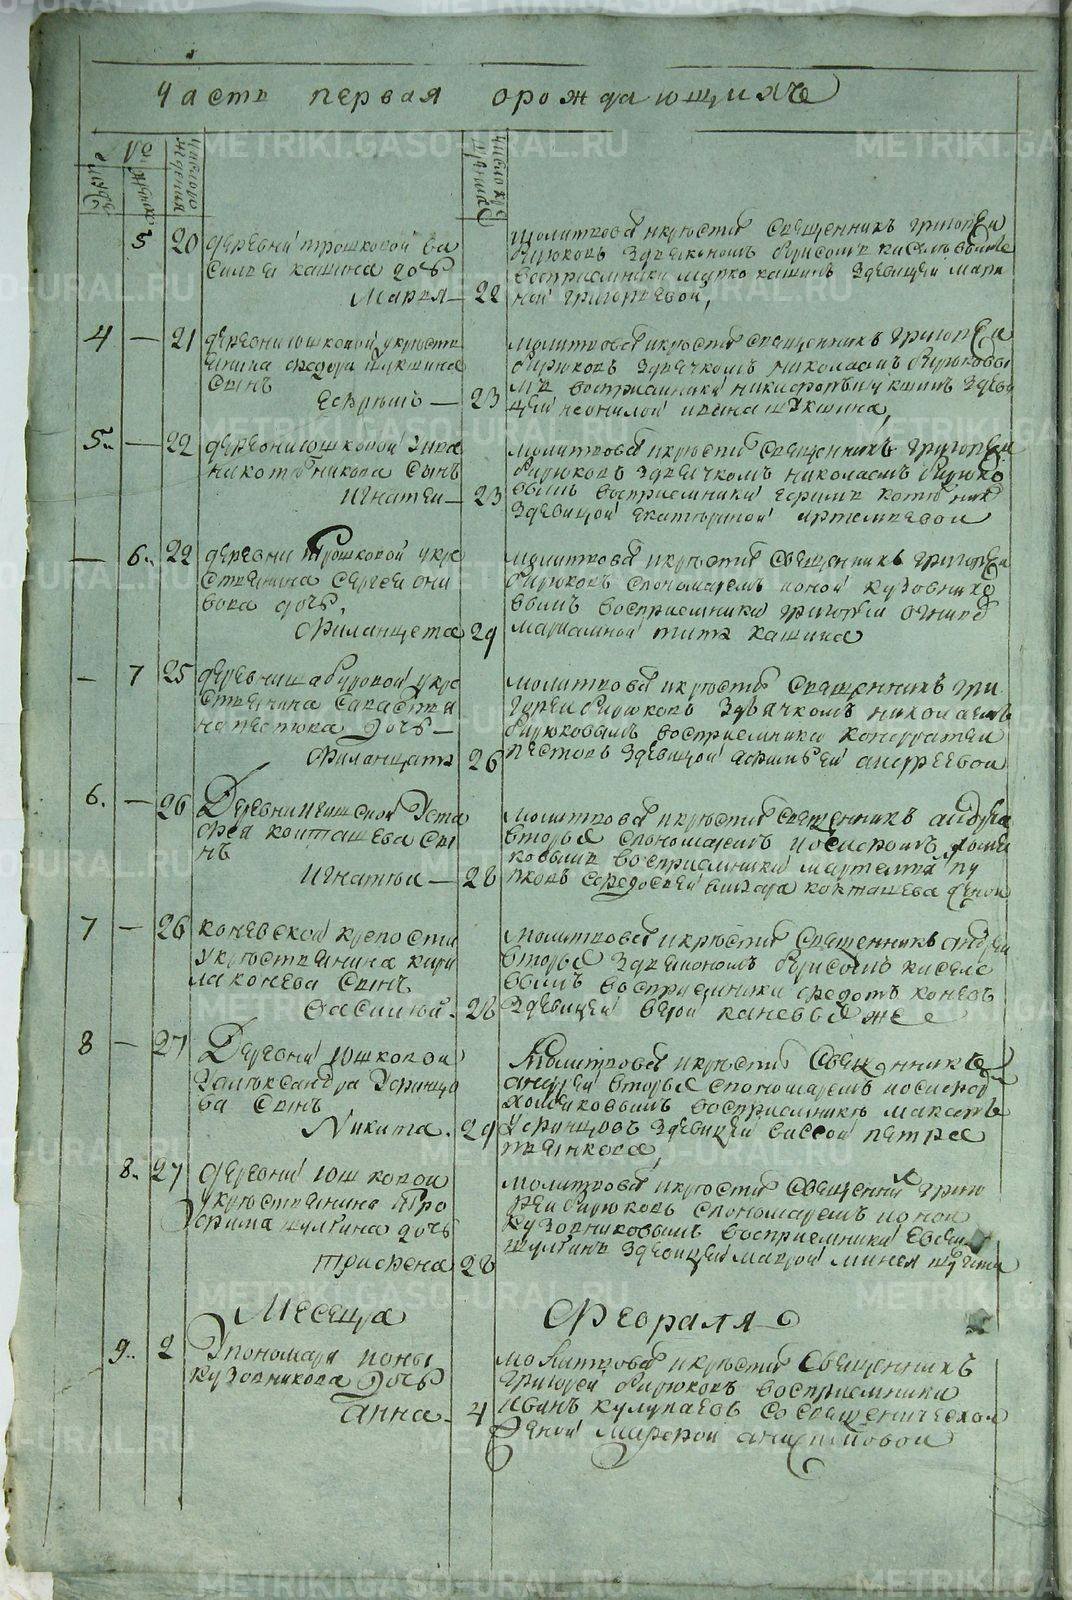 Часть первая орождающихъ
№
число рождения
число крещения
5 20 деревни трошковой ва
силья кашина дочь
Марья 22
молитвовал и крестил Священникъ григорей
бирюковъ здьяконом борисомъ киселевымъ
восприемники марко кашинъ здевицей мари
ной григорьевой,
4 — 21 деревни юшковой укрестья
янина федора шукшина
сынъ
Ефремъ — 23
молитвовал и крестил священникъ григорей
бирюковъ здьячкомъ николаемъ бирюковы
мъ восприемники никифоръ шукшинъ здеви
цей неонилой ивана шукшина
5 — 22 деревни юшковой
котельникова сынъ
Игнатеи — 23
молитвовал и крестил Священникъ григорей
бирюковъ здьячкомъ николаемъ бирюко
вымъ восприемники ефимъ котельник
здевицей екатериной артемьевой
— 6 22 деревни Трошковой укре
стьянина сергея они
дочь,
Филанцета 29
молитвовал и крестил Священникъ григорей
бирюковъ спономаремъ ионой кузовнико
вымъ восприемники григорей
марианной тита кашина
— 7 25 деревни шабуровой укре
стьянина савастья
на пестова дочь —
Филанцата 26
молитвовал и крестил Священникъ гри
горей бирюковъ здьячкомъ николаемъ
бирюковымъ восприемники кондратеи
пестовъ здевицой афимьей андреевой
6. — 26 Деревни уста
фея конташева сы
нъ
Игнатеи — 28
молитвовал и крестил священникъ андрей
вторых спономаремъ иосифомъ хомя
ковымъ восприемники
7 — 26 коневской крепости
укрестьянина кири
ла конева Сынъ
Василий 28
молитвовал и крестил Священникъ андрей
вторых здьяконом борисомъ киселе
вымъ восприемники федотъ коневъ
здевицей верой каневых же
8 — 27 Деревни Юшковой
уалександра уфинцо
ва Сынъ
Никита. 29
Молитвовал и крестил Священникъ
андрей вторых спономаремъ иосифом
хомяковымъ восприемники
уфинцовъ здевицей вассой петра
8. 27 деревни Юшковой
укрестьянина тро
фима шулгина дочь
трифена 28
молитвовал и крестил Священник григо
рей бирюковъ спономаремъ ионой
кузовниковымъ восприемники евсеи
шулгинъ здевицей маврой
Месеца Февраля
9.. 2 Упономаря ионы
кузовникова дочь
анна — 4
молитвовал и крестил Священникъ
григорей бирюковъ восприемники
иванъ кулупаевъ со священнической
женой марфой
METRIKI.GASO-URAL.RU